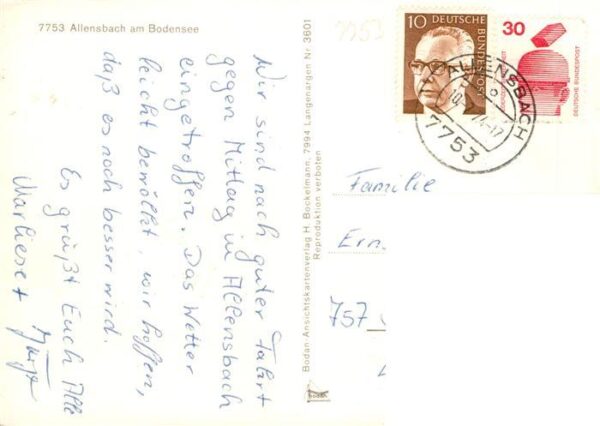 7753 Allensbach am Bodensee
Wir sind nach guter Fahrt
gegen Mittag in Allensbach
eingetroffen. Das Wetter
leicht bewölkt, wir hoffen,
daß es noch besser wird.
Es grüßt Euch Alle
Marliese +
Bodan Ansichtskartenverlag H. Bockelmann, 7994 Langenargen Nr. 3601
Reproduktion verboten
7753
10 DEUTSCHE BUNDESPOST
30
DEUTSCHE BUNDESPOST
ALLENSBACH
7753
Familie
Ern
757